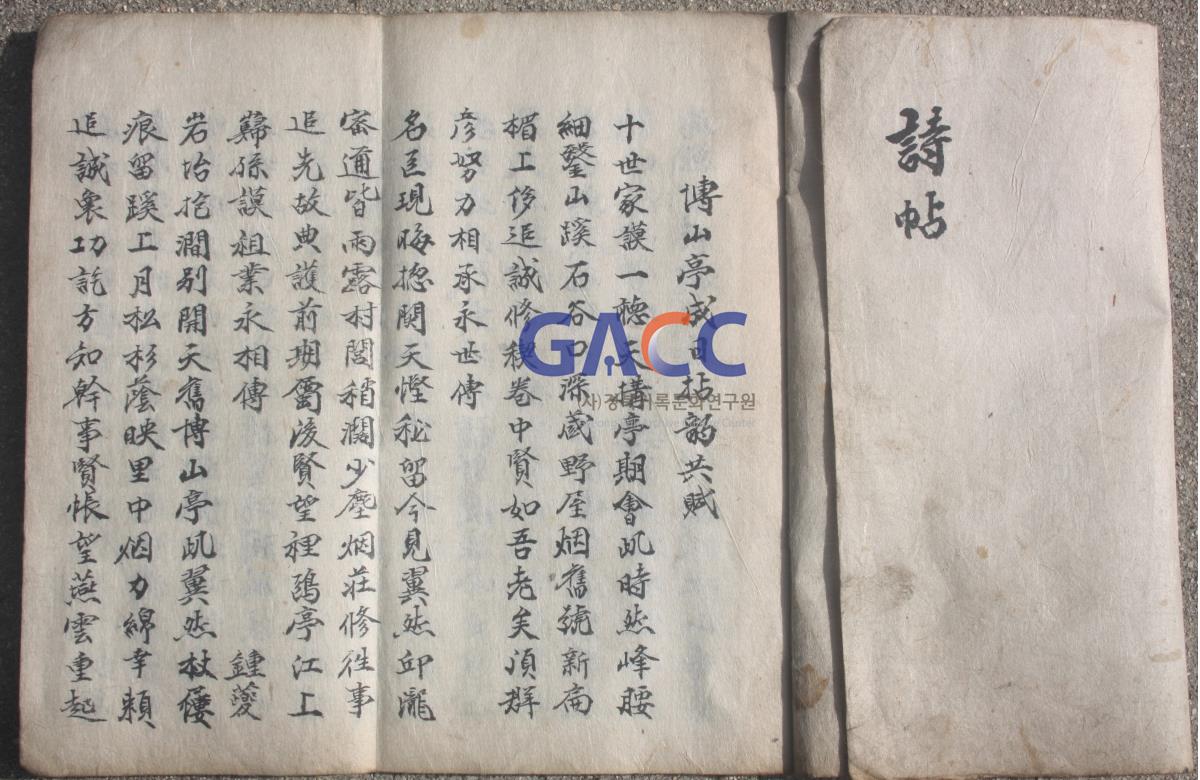 詩帖
博山亭成日拈韵共賦
十世家謨一德天構亭期會此時然峰腰
細鑿山蹊石谷口深藏野屋烟舊號新扁
楣上侈追誠修稧卷中賢如吾老矣須群
彦努力相承永世傳
名區現晦揔関天慳秘留今見翼然邱壠
密通皆雨露村閭稍濶少塵烟莊修徃事
追先故典護前期屬後賢望裡鵄亭江上
孫謨祖業永相傳 鍾夔
岩 澗別開天舊博山亭此翼然杖屨
痕留蹊上月松杉蔭映里中烟力綿幸賴
追誠衆功訖方知幹事賢悵望燕雲重起
GACC
사)경북기록문화연구원